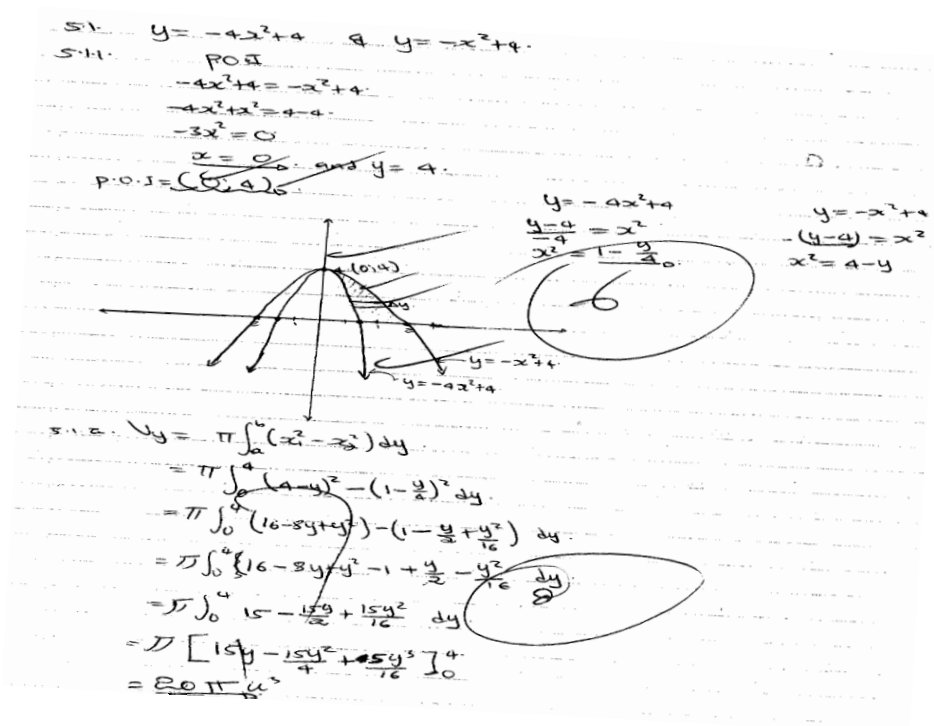 5.1. y = -4x²+4 & y = -x²+4.
5.1.1. P.O.I
-4x²+4 = -x²+4.
-4x²+x² = 4-4.
-3x² = 0
x = 0. and y = 4.
P.O.I = (0; 4)
y = -4x²+4
y-4/-4 = x²
x² = 1 - y/4
6
y = -x²+4
-(y-4) = x²
x² = 4-y
(0;4)
y = -x²+4
y = -4x²+4
5.1.2. Vy = π∫ₐᵇ (x₁² - x₂²) dy.
= π∫₀⁴ (4-y)² - (1-y/4)² dy.
= π∫₀⁴ (16-8y+y²) - (1 - y/2 + y²/16) dy.
= π∫₀⁴ {16 - 8y + y² - 1 + y/2 - y²/16 dy
= π∫₀⁴ 15 - 15y/2 + 15y²/16 dy
8
= π [15y - 15y²/4 + 5y³/16]₀⁴
= 20π u³